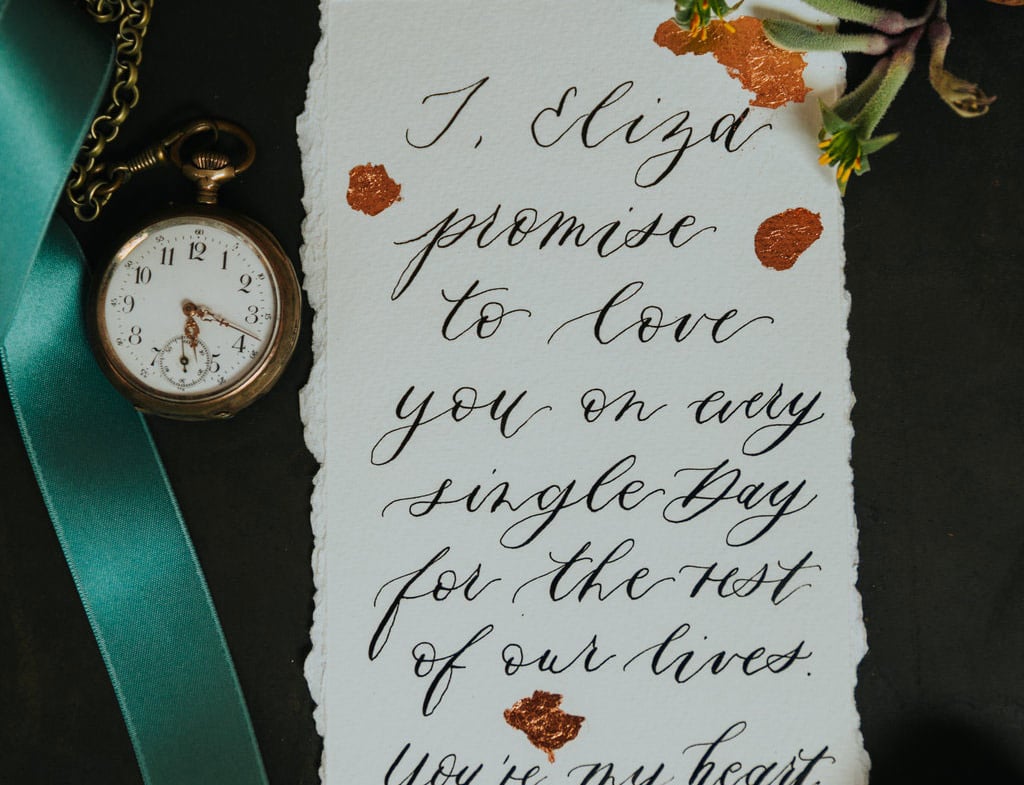 I, Eliza
promise
to love
you on every
single Day
for the rest
of our lives.
You're my heart
60
12
11
1
10
2
9
3
8
4
7
5